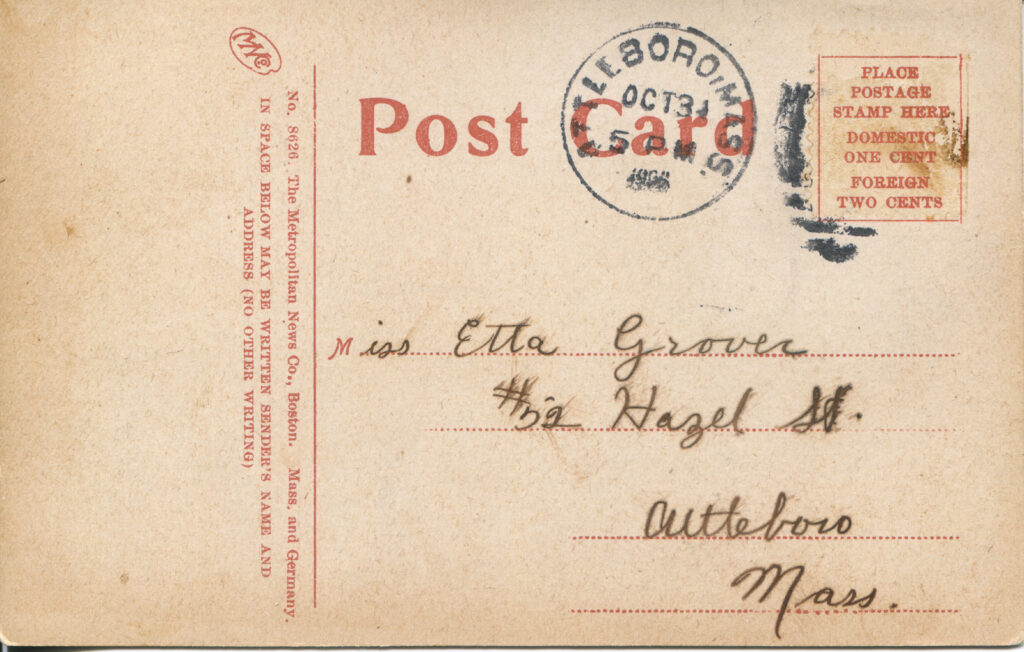 MNCo.
No. 8626. The Metropolitan News Co., Boston. Mass. and Germany.
IN SPACE BELOW MAY BE WRITTEN SENDER'S NAME AND
ADDRESS (NO OTHER WRITING)
Post Card
ATTLEBORO, MASS.
OCT 31
5 PM
PLACE
POSTAGE
STAMP HERE
DOMESTIC
ONE CENT
FOREIGN
TWO CENTS
Miss Etta Grover
#52 Hazel St.
Attleboro
Mass.